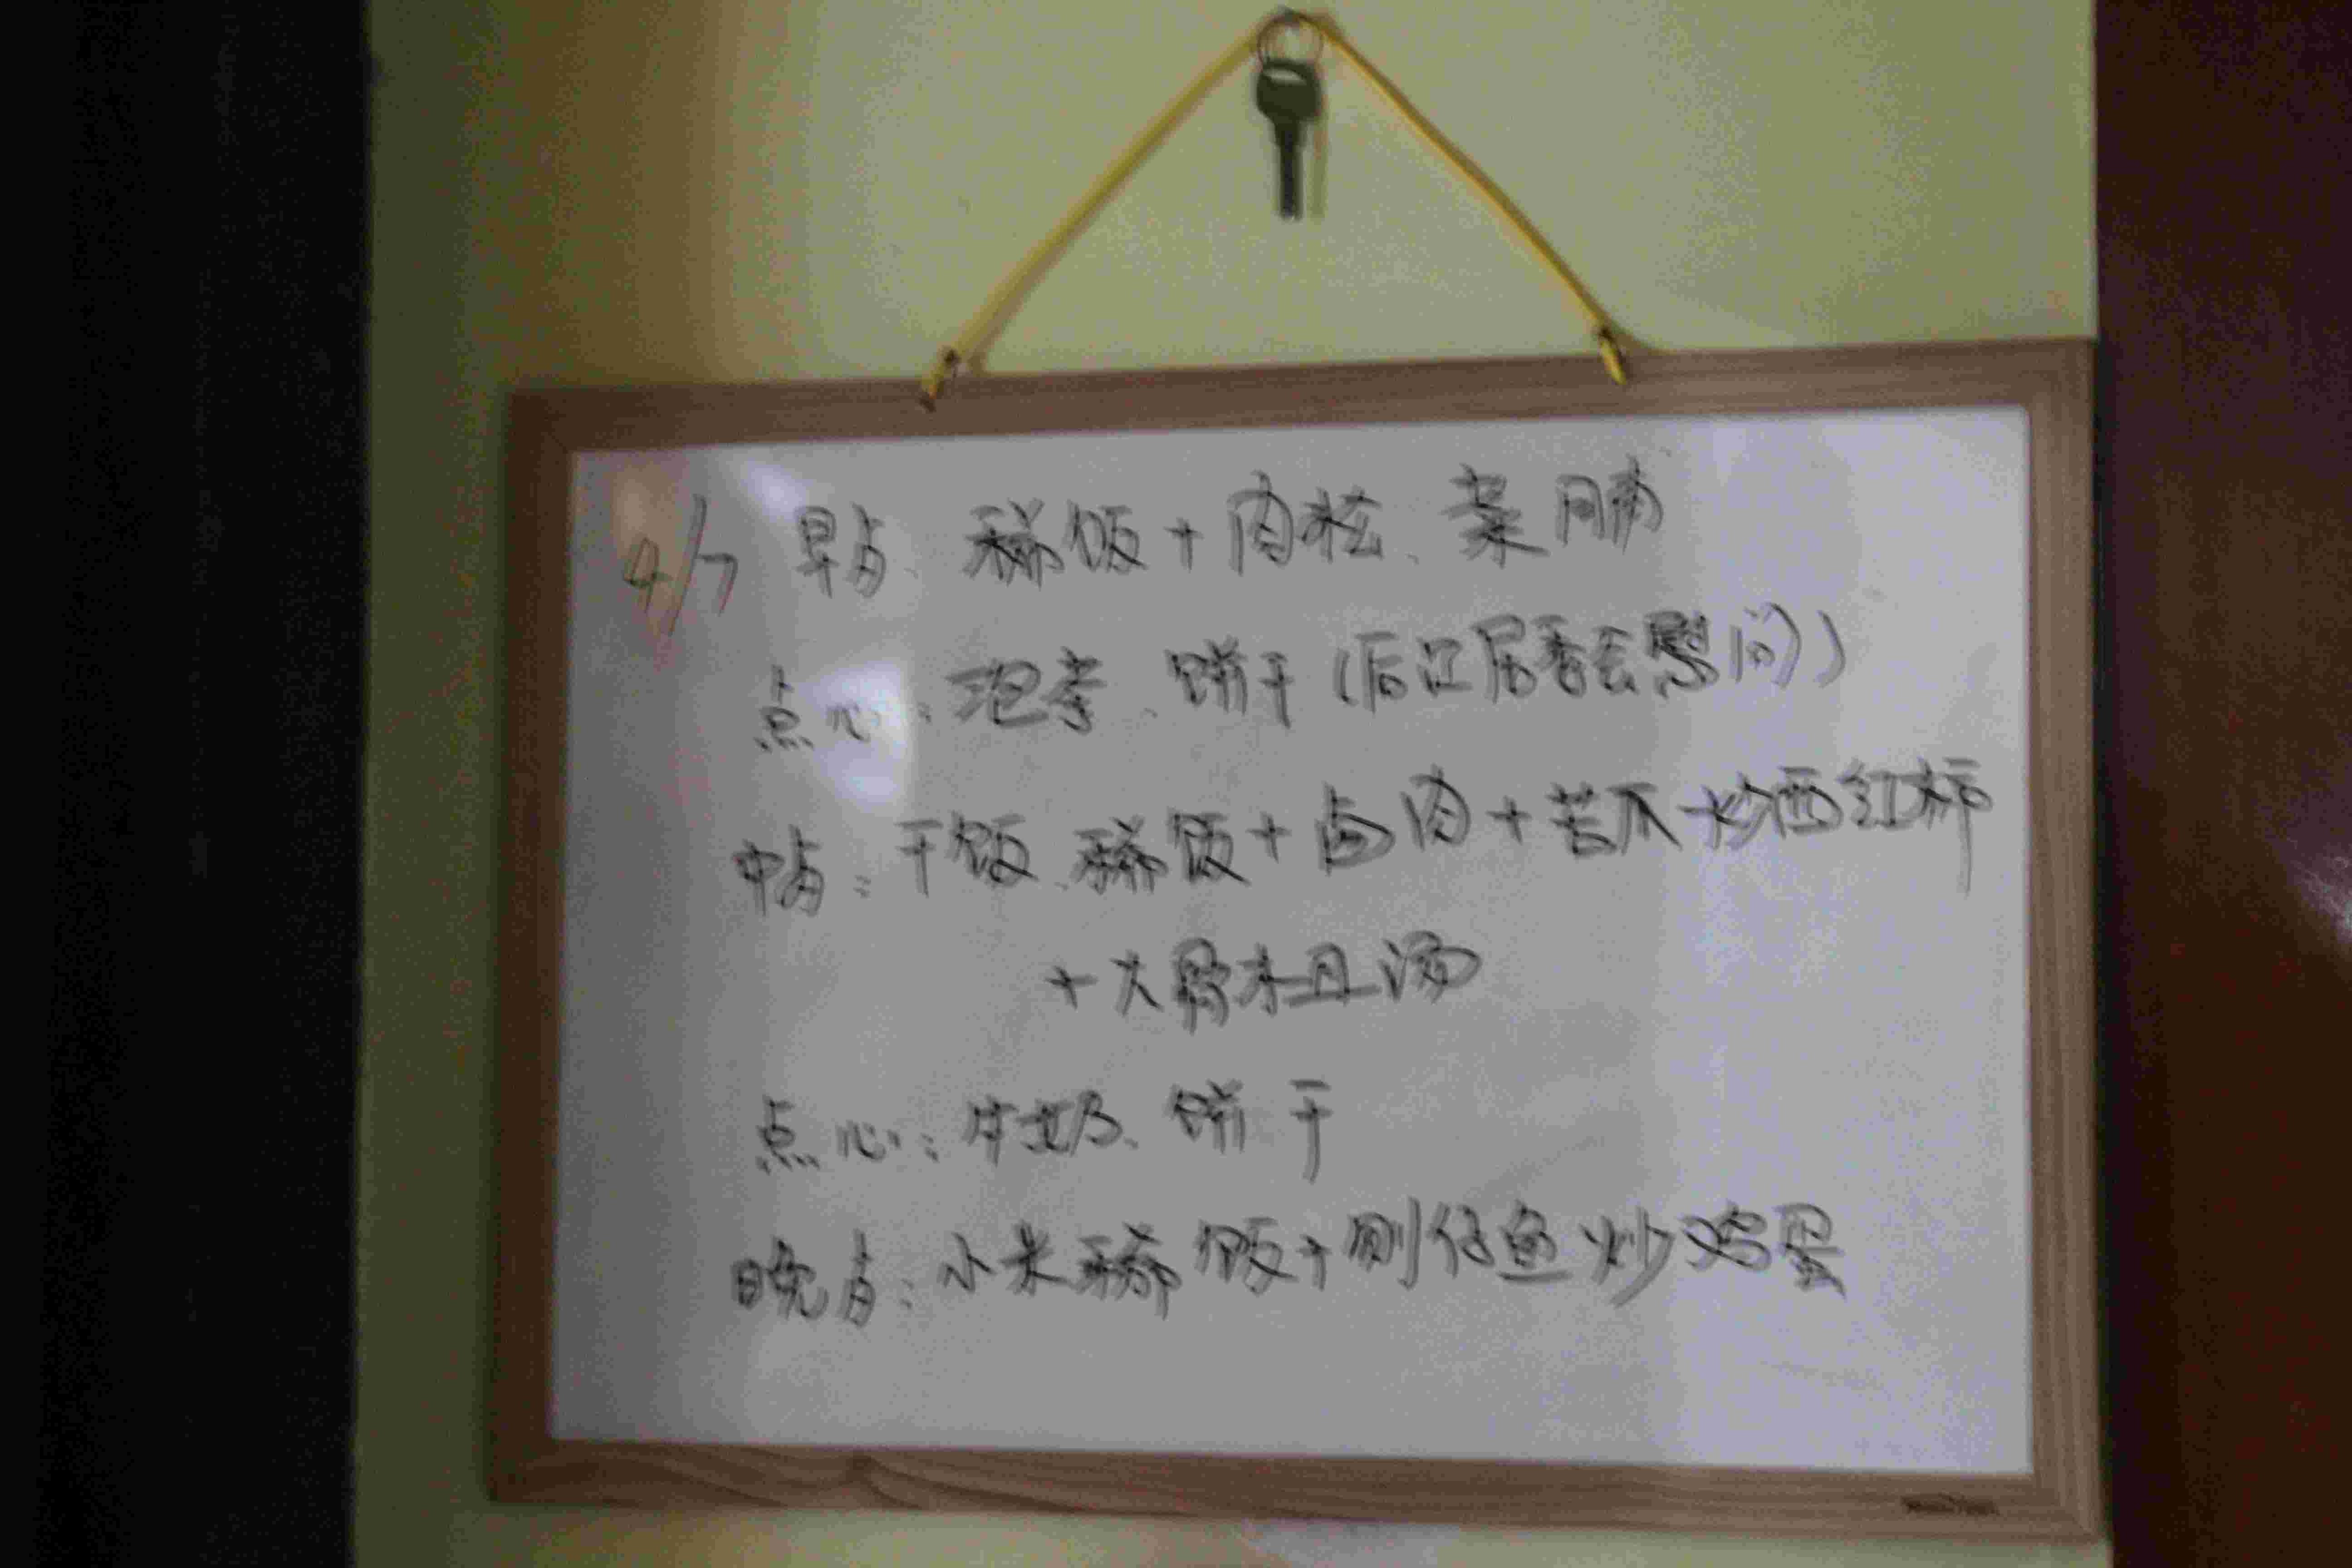 4/7 早点 稀饭+肉松、菜脯
点心:泡芙、饼干(后江居委会慰问)
中点:干饭、稀饭+卤肉+苦瓜炒西红柿
+大骨汤
点心:牛奶、饼干
晚点:小米稀饭+仔鱼炒鸡蛋